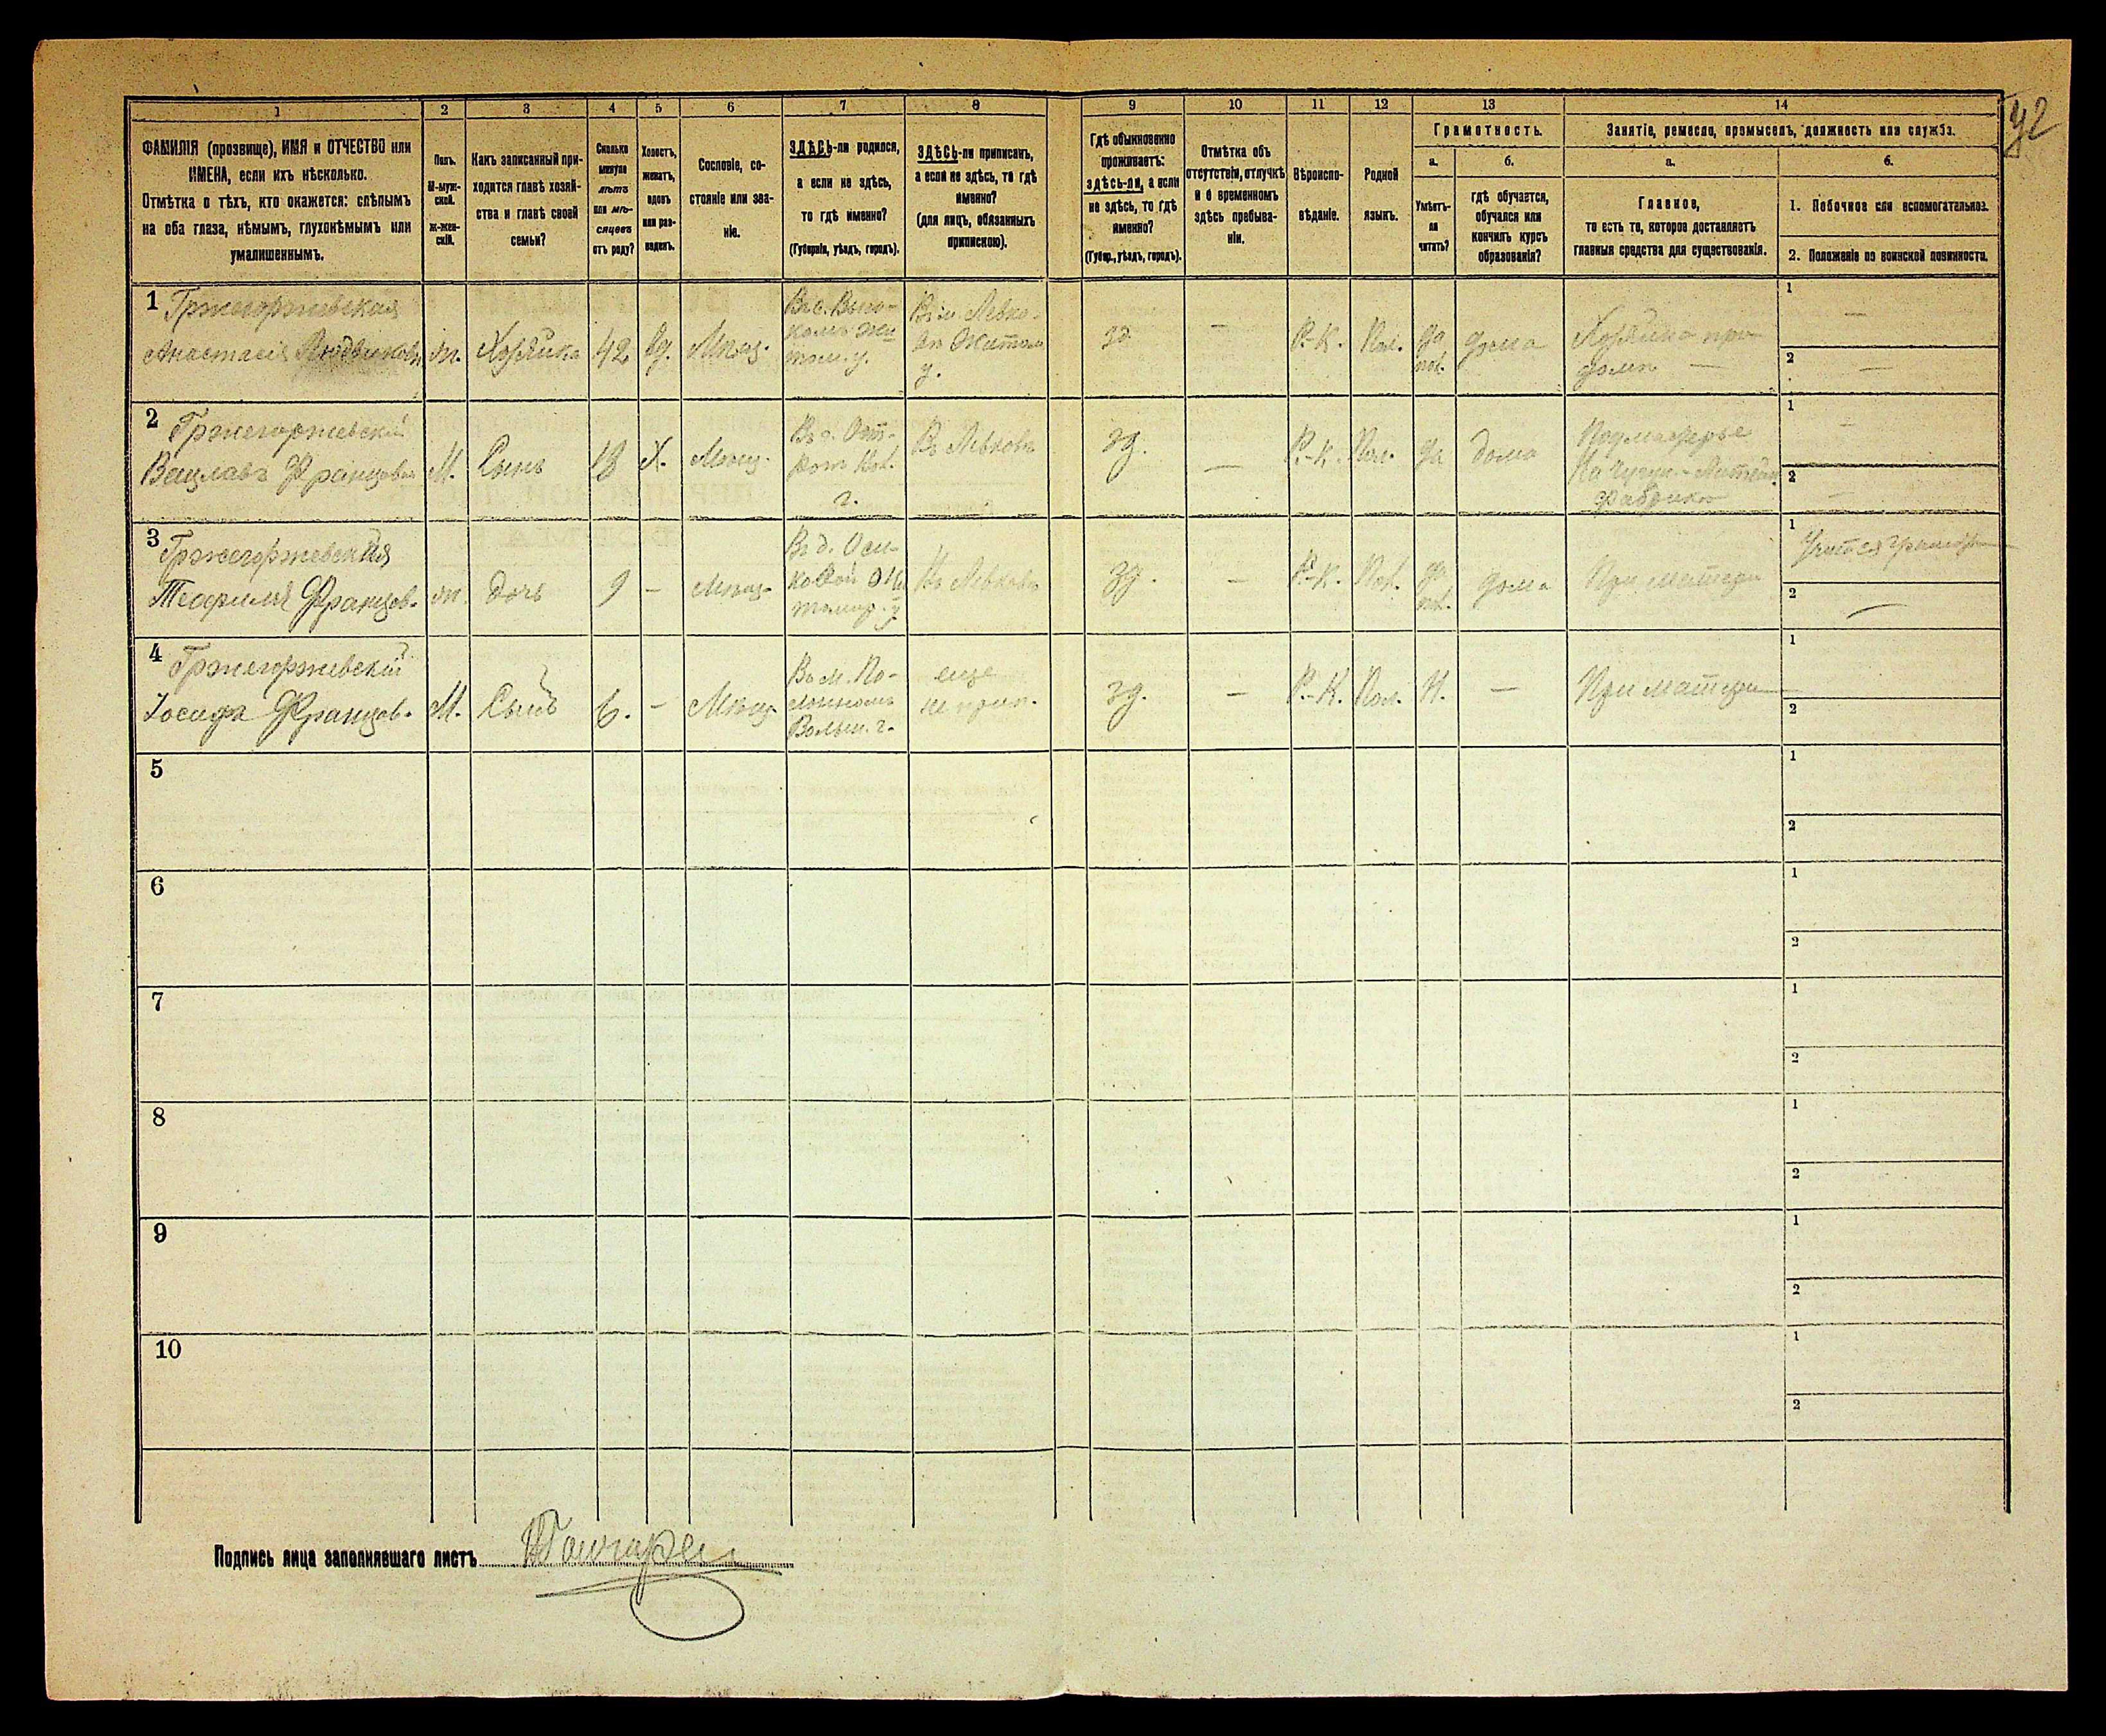 42
1 2 3 4 5 6 7 8 9 10 11 12 13 14
ФАМИЛІЯ (прозвище), ИМЯ и ОТЧЕСТВО или
ИМЕНА, если ихъ нѣсколько.
Отмѣтка о тѣхъ, кто окажется: слѣпымъ
на оба глаза, нѣмымъ, глухонѣмымъ или
умалишеннымъ.
Полъ.
М-муж-
ской.
ж-жен-
скій.
Какъ записанный при-
ходится главѣ хозяй-
ства и главѣ своей
семьи?
Сколько
минуло
лѣтъ
или мѣ-
сяцевъ
отъ роду?
Холостъ,
женатъ,
вдовъ
или раз-
веденъ.
Сословіе, со-
стояніе или зва-
ніе.
ЗДѢСЬ-ли родился,
а если не здѣсь,
то гдѣ именно?
(Губернія, уѣздъ, городъ).
ЗДѢСЬ-ли приписанъ,
а если не здѣсь, то гдѣ
именно?
(для лицъ, обязанныхъ
припискою).
Гдѣ обыкновенно
проживаетъ:
здѣсь-ли, а если
не здѣсь, то гдѣ
именно?
(Губер., уѣздъ, городъ).
Отмѣтка объ
отсутствіи, отлучкѣ
и о временномъ
здѣсь пребыва-
ніи.
Вѣроиспо-
вѣданіе.
Родной
языкъ.
Грамотность.
а. б.
Умѣетъ-
ли
читать?
гдѣ обучается,
обучался или
кончилъ курсъ
образованія?
Занятіе, ремесло, промыселъ, должность или служба.
а. б.
Главное,
то есть то, которое доставляетъ
главныя средства для существованія.
1. Побочное или вспомогательное.
2. Положеніе по воинской повинности.
1 Гржегоржевская
Анастасія Людвиковн.
ж. Хозяйка 42 вд. Мѣщ.
зд. — Р.-К. Пол. да
пол. дома
Хозяйка при
домѣ —
1 —
2 —
2 Гржегоржевскій
Вацлавъ Францов.
М. Сынъ 18 Х. Мѣщ.
Въ Левковѣ
зд. — Р.-К. Пол. да дома
Подмастерье
На Чугун.-Литейн.
фабрикѣ
1 —
2 —
3 Гржегоржевская
Теофилія Францов.
ж. дочь 9 — Мѣщ.
Въ Левковѣ
зд. — Р.-К. Пол. да
пол. дома
При матери
1 Учится грамотѣ
2 —
4 Гржегоржевскій
Іосифъ Францов.
М. Сынъ 6. — Мѣщ.
Въ м. По-
Волын. г.
еще
не прип.
зд. — Р.-К. Пол. Н. —
При матери —
1
2
5 1
2
6 1
2
7 1
2
8 1
2
9 1
2
10 1
2
Подпись лица заполнявшаго листъ